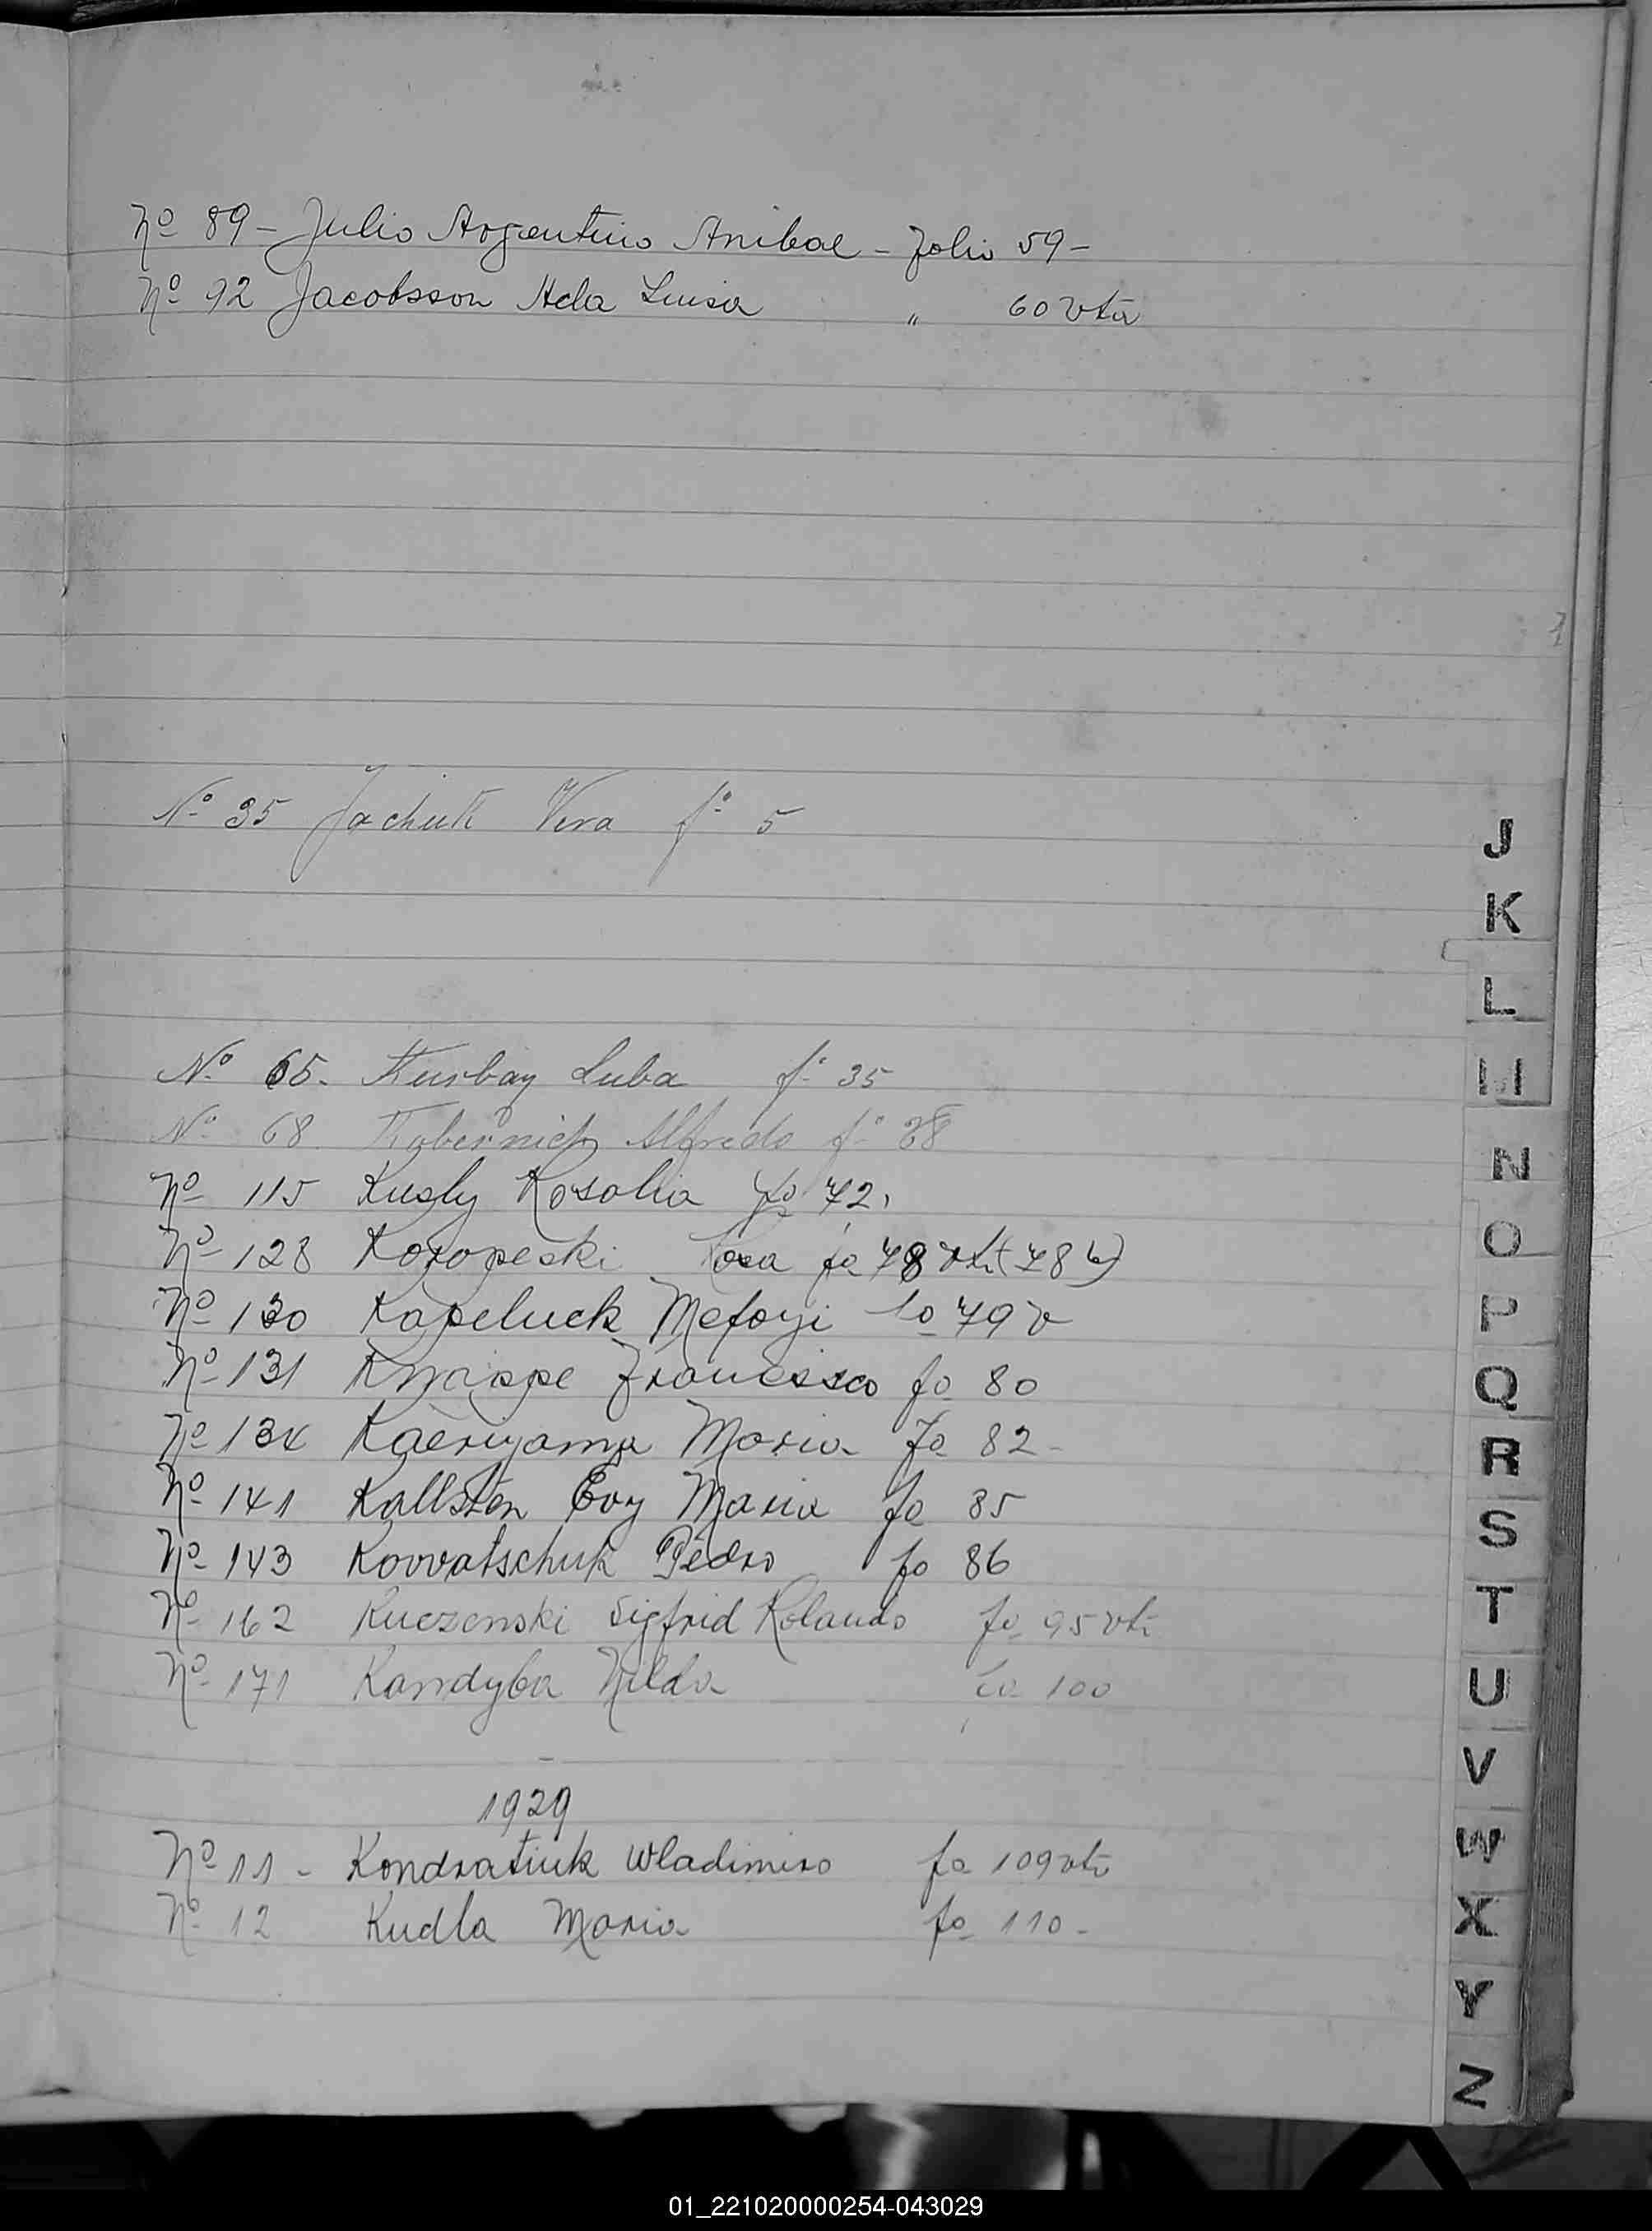 Nº 89 - Julio Argentino Anibal - Folio 59 -
Nº 92 Jacobsson Hda Luisa " 60 vta
Nº 35 Jachuk Vera fº 5
J
K
L
M
Nº 65. Kurbay Luba fº 35
Nº 68. Kobernich Alfredo fº 38
Nº 115 Kugly Rosalia fo 72.
N
Nº 128 Koropeski Rosa fo 78 vta (78 b)
O
Nº 130 Kapeluck Mefoyi fo 79 v
P
Nº 131 Knappe Francisco fo 80
Q
Nº 134 Kaeriyama Maria Fo 82 -
R
Nº 141 Kallsten Evy Maria fo 85
S
Nº 143 Kovvatschuk Pedro fo 86
Nº 162 Kuczenski Sigfrid Rolando fo 95 vta
T
Nº 171 Kandyba Nilda fo 100
U
V
1929
Nº 11 - Kondratiuk Wladimiro fo 109 vta
W
Nº 12 Kudla Maria fo 110 -
X
Y
Z
01_221020000254-043029